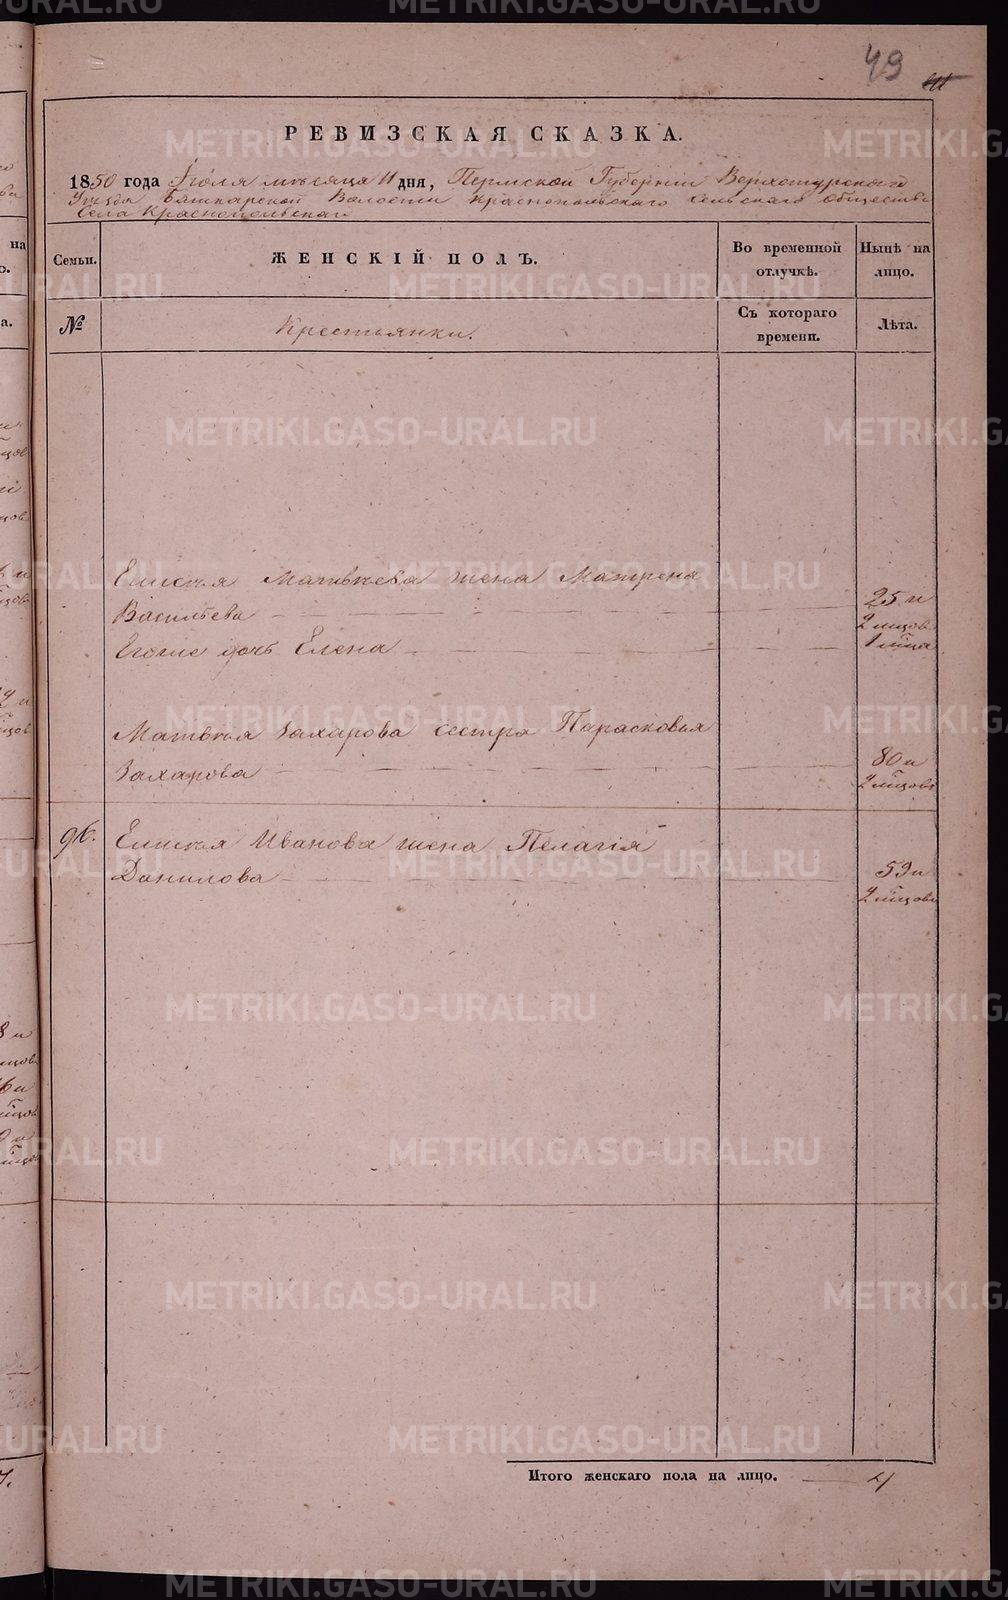 METRIKI.GASO-URAL.RU
49
РЕВИЗСКАЯ СКАЗКА.
1850 года Іюля мѣсяца 11 дня, Пермской Губерніи Верхотурскаго
Уѣзда Башкарской Волости Краснопольскаго сельскаго общества
Села Краснопольскаго
Семьи.
ЖЕНСКІЙ ПОЛЪ.
Во временной отлучкѣ.
Нынѣ на лицо.
№
Крестьянки.
Съ котораго времени.
Лѣта.
Елисея Матвѣева жена Матрена
Васильева 25 и
2 мѣсяцовъ
Егоже дочь Елена 1 мѣсяца
Матвѣя Захарова сестра Парасковья
Захарова 80 и
2 мѣсяцовъ
96. Елисея Иванова жена Пелагія
Данилова 59 и
2 мѣсяцовъ
Итого женскаго пола на лицо. 4